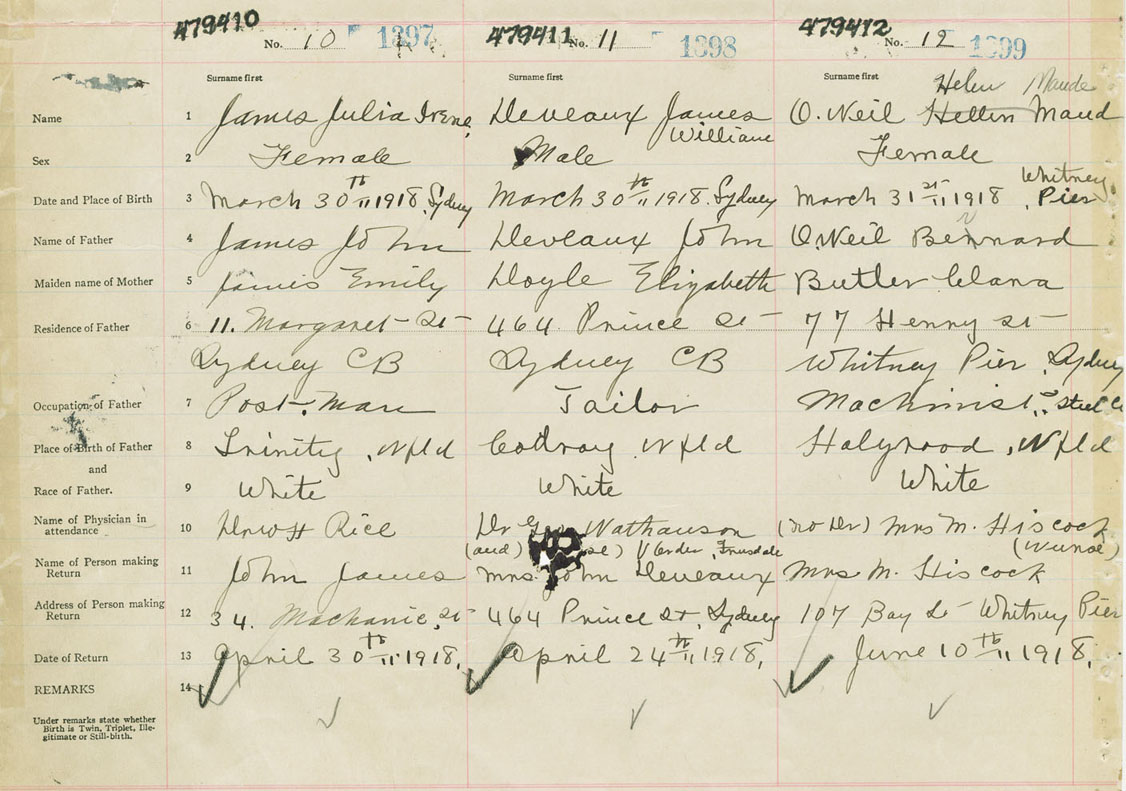 479410 479411 479412
No. 10 1897 No. 11 1898 No. 12 1899
Surname first Surname first Surname first Helen Maude
Name 1 James Julia Irene Deveaux James O.Neil Hellen Maud
William
Sex 2 Female Male Female
Whitney
Date and Place of Birth 3 March 30th 1918, Sydney March 30th 1918. Sydney March 31st 1918, Pier
Name of Father 4 James John Deveaux John O.Neil Bernard
Maiden name of Mother 5 Emily Doyle Elizabeth Butler Clara
Residence of Father 6 11. Margaret St 464 Prince St 77 Henry St
Sydney CB Sydney CB Whitney Pier, Sydney
Occupation of Father 7 Post-Man Tailor Machinist, Steel Co
Place of Birth of Father 8 Trinity, Nfld Codroy Nfld Holyrood, Nfld
and
Race of Father. 9 White White White
Name of Physician in
attendance 10 Rice Dr Nathanson (no Dr) Mrs M. Hiscock
(and) (Nurse)
Name of Person making
Return 11 John James Mrs John Deveaux Mrs M. Hiscock
Address of Person making
Return 12 34. Mechanic St 464 Prince St, Sydney 107 Bay St Whitney Pier
Date of Return 13 April 30th 1918, April 24th 1918, June 10th 1918,
REMARKS 14
Under remarks state whether
Birth is Twin, Triplet, Ille-
gitimate or Still-birth.